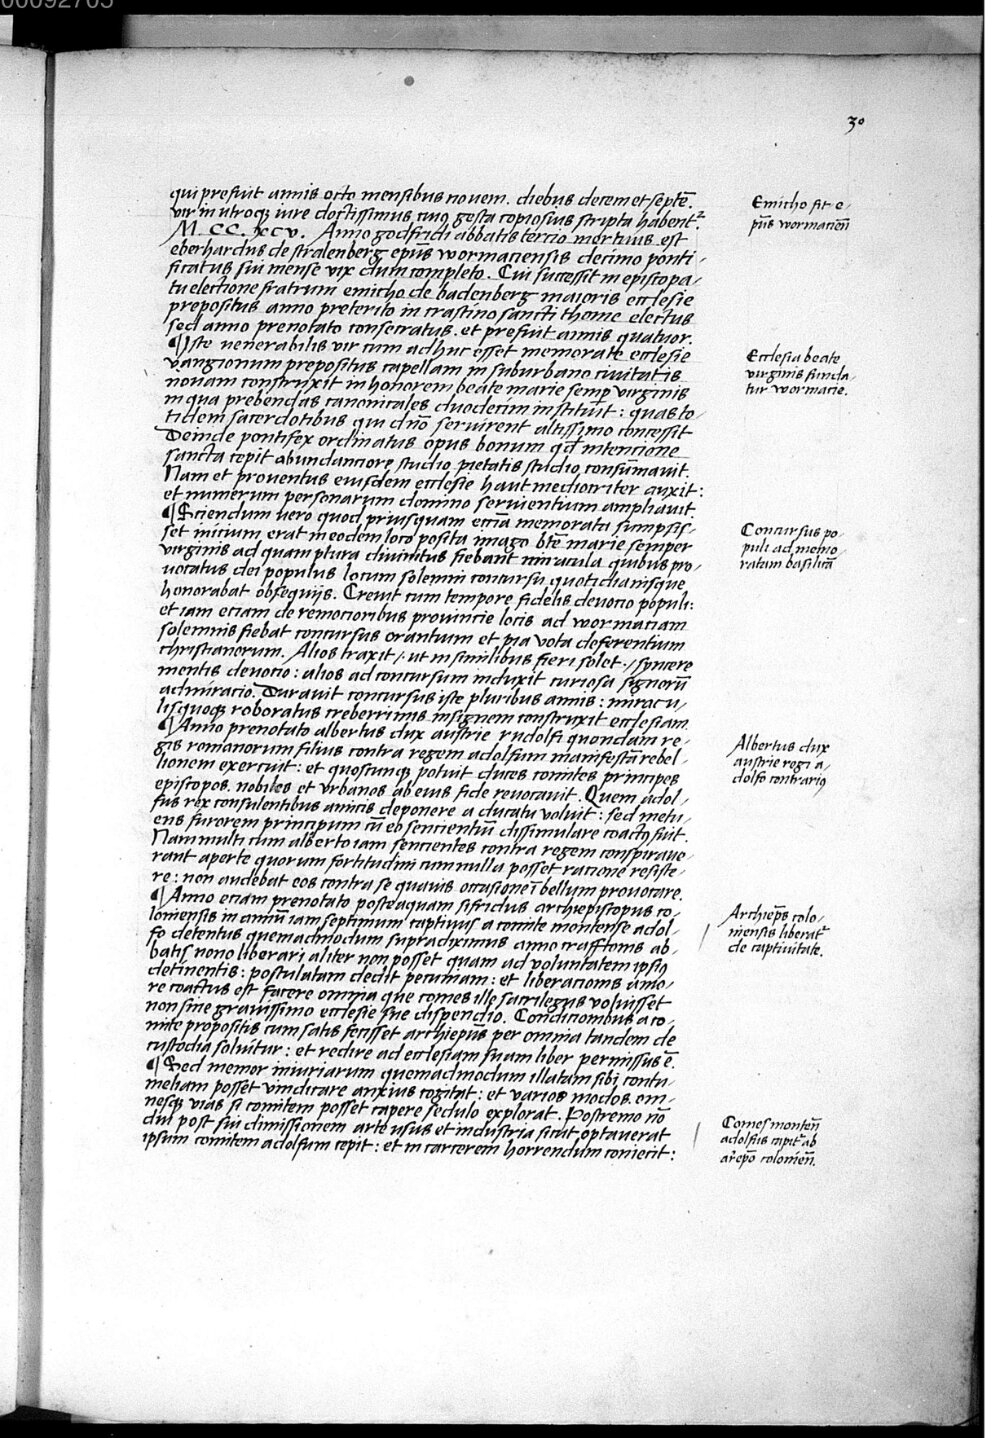 30
qui prefuit annis octo mensibus nouem. diebus decem et septē.
vir in utroqꝫ iure doctissimus cuiꝰ gesta copiosius scripta habent᷒.
M. CC. XCV. Anno godfridi abbatis tercio mortuus est
eberhardus de stralenberg ep̄us wormaciensis decimo ponti-
ficatus sui mense vix dum completo. Cui successit in episcopa-
tu electione fratrum emicho de badenberg maioris ecclesie
prepositus anno preterito in crastino sancti thome electus
sed anno prenotato consecratus. et prefuit annis quatuor.
¶ Iste venerabilis vir cum adhuc esset memorate ecclesie
vangionum prepositus capellam in suburbano ciuitatis
nouam construxit in honorem beate marie semp̄ virginis
in qua prebendas canonicales duodecim instituit: quas to-
tidem sacerdotibus qui dn̄o seruirent altissimo concessit
Deinde pontifex ordinatus opus bonum qd̄ intencione
sancta cepit abundanciore studio pietatis studio consumauit.
Nam et prouentus eiusdem ecclesie haut mediocriter auxit:
et numerum personarum domino seruientium ampliauit.
¶ Sciendum uero quod priusquam ecc̄ia memorata sumpsis-
set inicium erat in eodem loco posita imago bt̄e marie semper
virginis ad quam plura diuinitus fiebant miracula quibus pro-
uocatus dei populus locum solemni concursu quotidianisque
honorabat obsequijs. Creuit cum tempore fidelis deuocio populi:
et iam eciam de remotioribus prouincie locis ad wormaciam
solemnis fiebat concursus orantium et pia vota deferentium
christianorum. Alios traxit /. ut in similibus fieri solet ./ syncere
mentis deuocio: alios ad concursum induxit curiosa signorū
admiracio. Durauit concursus iste pluribus annis: miracu-
lisquoqꝫ roboratus creberrimis insignem construxit ecclesiam.
¶ Anno prenotato albertus dux austrie rudolfi quondam re-
gis romanorum filius contra regem adolfum manifestā rebel-
lionem exercuit: et quoscunqꝫ potuit duces comites principes
episcopos. nobiles et vrbanos ab eius fide reuocauit. Quem adol-
fus rex consulentibus amicis deponere a ducatu voluit: sed metu-
ens furorem principum cū eo sencientiū dissimulare coactꝰ fuit.
Nam multi cum alberto iam sencientes contra regem conspiraue-
rant aperte quorum fortitudini cum nulla posset racione resiste-
re: non audebat eos contra se quauis occasione ī bellum prouocare.
¶ Anno eciam prenotato posteaquam sifridus archiepiscopus co-
loniensis in annū iam septimum captiuus a comite montense adol-
fo detentus quemadmodum supradiximus anno crafftonis ab-
batis nono liberari aliter non posset quam ad voluntatem ipsiꝰ
detinentis: postulatam dedit pecuniam: et liberacionis amo-
re coactus est facere omnia que comes ille sacrilegus voluisset
non sine grauissimo ecclesie sue dispendio. Condicionibus a co-
mite propositis cum satis fecisset archiep̄us per omnia tandem de
custodia soluitur: et redire ad ecclesiam suam liber permissus ē.
¶ Sed memor iniuriarum quemadmodum illatam sibi contu-
meliam posset vindicare anxius cogitat: et varios modos. om-
nesqꝫ vias si comitem posset capere sedulo explorat. Postremo nō
diu post sui dimissionem arte usus et industria sicut optauerat
ipsum comitem adolfum cepit: et in carcerem horrendum coniecit:
Emicho fit e-
p̄us wormacien̄
Ecclesia beate
virginis funda-
tur wormacie.
Concursus po-
puli ad memo-
ratam basilicā
Albertus dux
austrie regi a-
dolfo contrariꝰ
Archiep̄s colo-
niensis liberat᷒
de captiuitate.
Comes monten̄
adolfus capit᷒ ab
ar̄epō colonien̄.